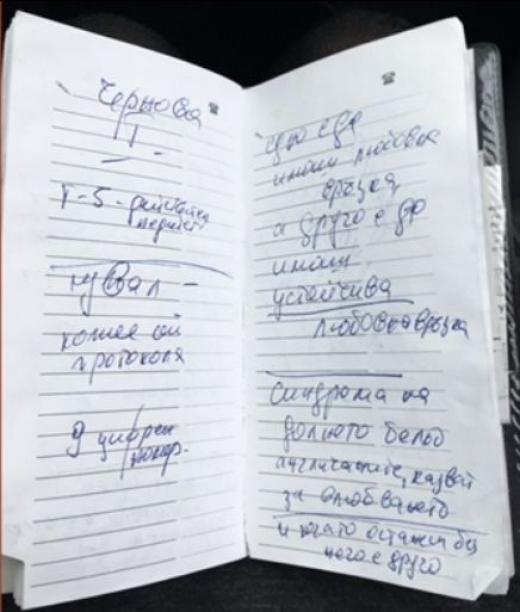 Чернова
II
Т-5 - действа
нувал -
копие от
протокола
9 цифрен
номер.
едно е да
имаш любовна
връзка
а друго е до
имаш
устойчива
любовна връзка
Синдрома на
долното бельо
англичаните, казват
за влюбването
и когато останеш без
него е друго